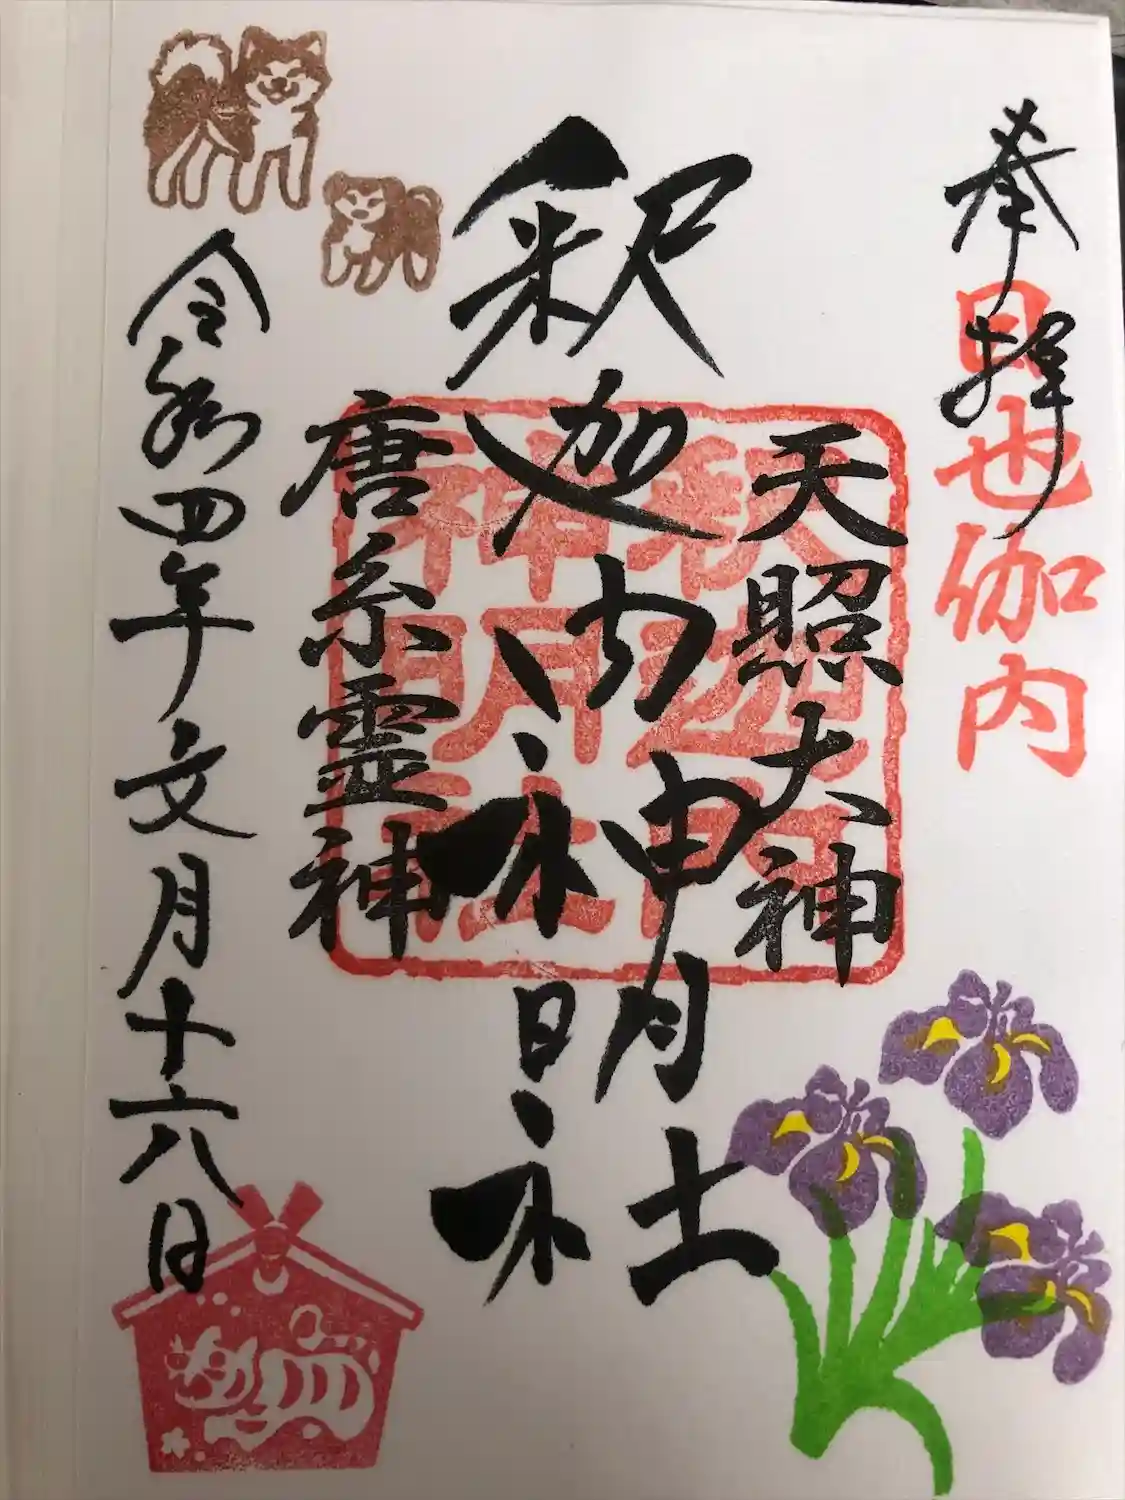 奉拝
日也伽内
天照大神
釈迦内神明社
釈迦内
神明社
唐糸霊神
令和四年文月十六日